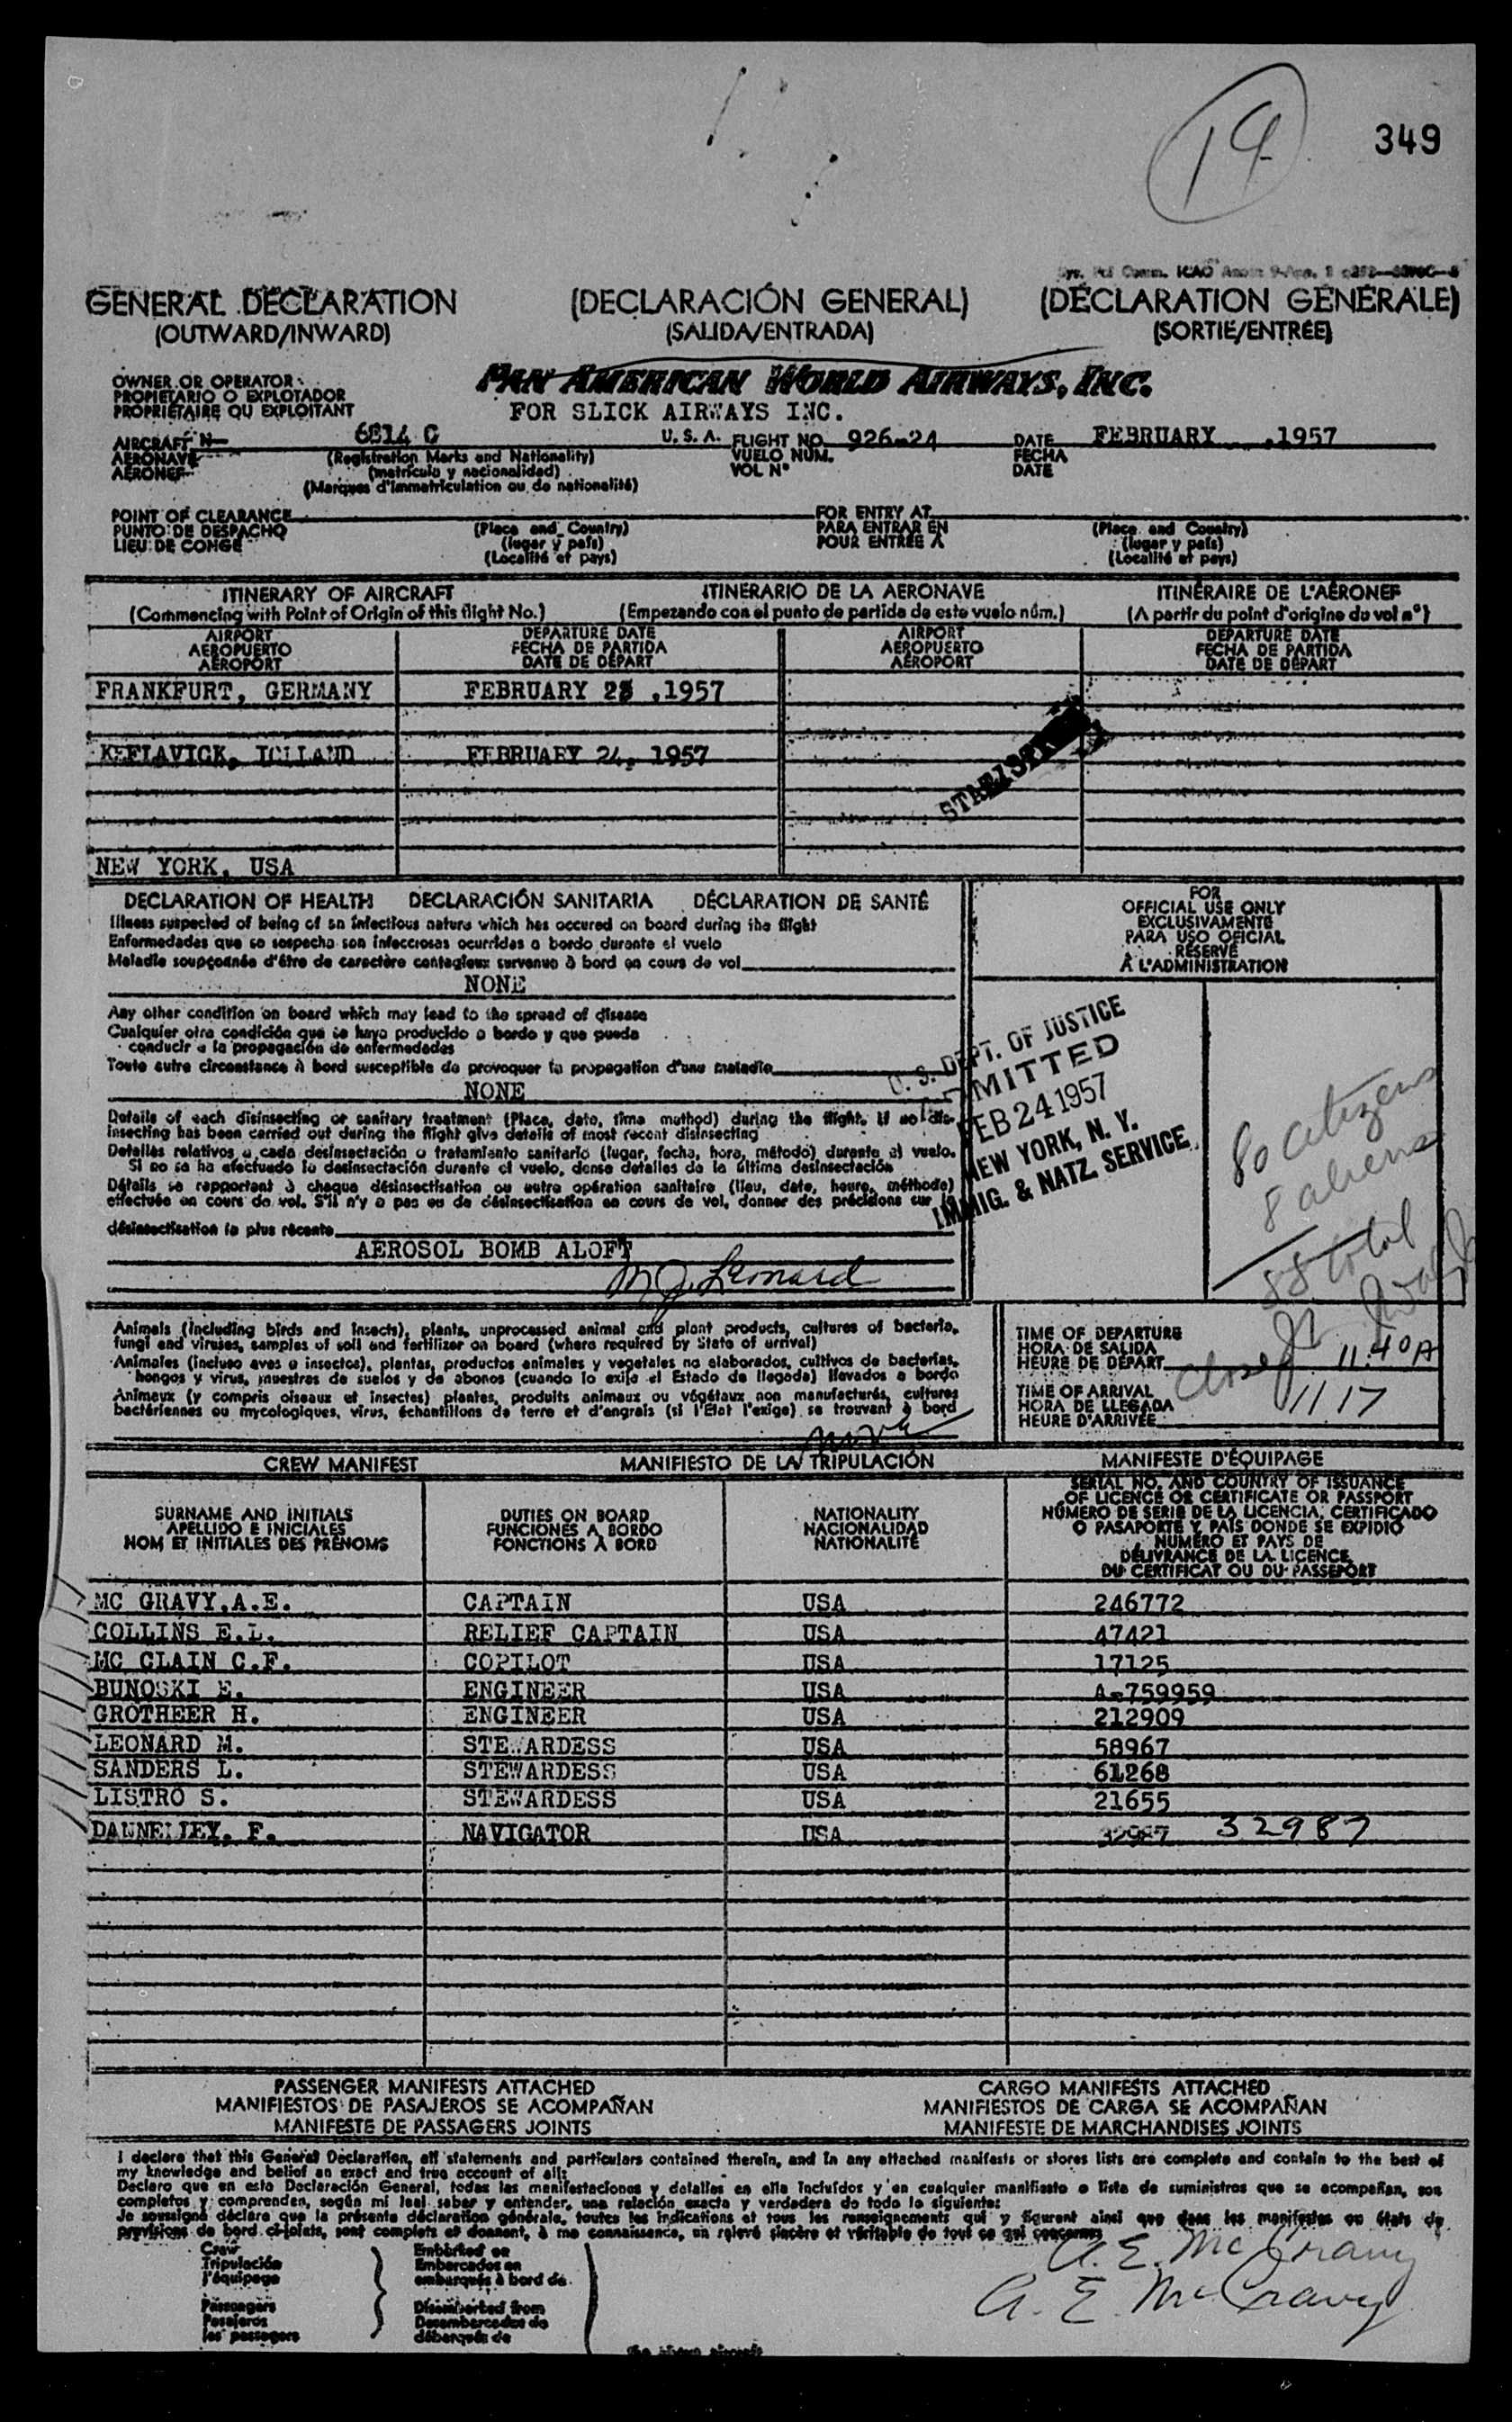 14
349
GENERAL DECLARATION (DECLARACIÓN GENERAL) (DÉCLARATION GÉNÉRALE)
(OUTWARD/INWARD) (SALIDA/ENTRADA) (SORTIE/ENTRÉE)
OWNER OR OPERATOR
PROPIETARIO O EXPLOTADOR
PROPRIÉTAIRE OU EXPLOITANT
PAN AMERICAN WORLD AIRWAYS, INC.
FOR SLICK AIRWAYS INC.
AIRCRAFT N- 6814 C U.S.A. FLIGHT NO. 926-24 DATE FEBRUARY ,1957
AERONAVE (Registration Marks and Nationality) VUELO NÚM. FECHA
AÉRONEF (matrícula y nacionalidad) VOL Nº DATE
(Marques d'immatriculation ou de nationalité)
POINT OF CLEARANCE FOR ENTRY AT
PUNTO DE DESPACHO (Place and Country) PARA ENTRAR EN (Place and Country)
LIEU DE CONGÉ (lugar y país) POUR ENTRÉE A (lugar y país)
(Localité et pays) (Localité et pays)
ITINERARY OF AIRCRAFT ITINERARIO DE LA AERONAVE ITINÉRAIRE DE L'AÉRONEF
(Commencing with Point of Origin of this flight No.) (Empezando con el punto de partida de este vuelo núm.) (A partir du point d'origine du vol nº)
AIRPORT DEPARTURE DATE AIRPORT DEPARTURE DATE
AEROPUERTO FECHA DE PARTIDA AEROPUERTO FECHA DE PARTIDA
AÉROPORT DATE DE DÉPART AÉROPORT DATE DE DÉPART
FRANKFURT, GERMANY FEBRUARY 23 ,1957
KEFLAVICK, ICLLAND FEBRUARY 24, 1957
NEW YORK, USA
DECLARATION OF HEALTH DECLARACIÓN SANITARIA DÉCLARATION DE SANTÉ
Illness suspected of being of an infectious nature which has occured on board during the flight
Enfermedades que se sospecha son infecciosas ocurridas a bordo durante el vuelo
Maladie soupçonnée d'être de caractère contagieux survenue à bord en cours de vol
NONE
Any other condition on board which may lead to the spread of disease
Cualquier otra condición que se haya producido a bordo y que pueda
conducir a la propagación de enfermedades
Toute autre circonstance à bord susceptible de provoquer la propagation d'une maladie
NONE
Details of each disinsecting or sanitary treatment (Place, date, time method) during the flight. If no dis-
insecting has been carried out during the flight give details of most recent disinsecting
Detalles relativos a cada desinsectación o tratamiento sanitario (lugar, fecha, hora, método) durante el vuelo.
Si no se ha efectuado la desinsectación durante el vuelo, dense detalles de la última desinsectación
Détails se rapportant à chaque désinsectisation ou autre opération sanitaire (lieu, date, heure, méthode)
effectuée en cours de vol. S'il n'y a pas eu de désinsectisation en cours de vol, donner des précisions sur la
désinsectisation la plus récente
AEROSOL BOMB ALOFT
M J. Leonard
FOR
OFFICIAL USE ONLY
EXCLUSIVAMENTE
PARA USO OFICIAL
RÉSERVÉ
À L'ADMINISTRATION
U. S. DEPT. OF JUSTICE
ADMITTED
FEB 24 1957
NEW YORK, N. Y.
IMMIG. & NATZ. SERVICE
80 citizens
8 aliens
88 total
Animals (including birds and insects), plants, unprocessed animal and plant products, cultures of bacteria,
fungi and viruses, samples of soil and fertilizer on board (where required by State of arrival)
Animales (incluso aves e insectos), plantas, productos animales y vegetales no elaborados, cultivos de bacterias,
hongos y virus, muestras de suelos y de abonos (cuando lo exija el Estado de llegada) llevados a bordo
Animaux (y compris oiseaux et insectes) plantes, produits animaux ou végétaux non manufacturés, cultures
bactériennes ou mycologiques, virus, échantillons de terre et d'engrais (si l'Etat l'exige) se trouvant à bord
none
TIME OF DEPARTURE
HORA DE SALIDA
HEURE DE DÉPART closed 11:40A
TIME OF ARRIVAL
HORA DE LLEGADA 1117
HEURE D'ARRIVÉE
CREW MANIFEST MANIFIESTO DE LA TRIPULACIÓN MANIFESTE D'ÉQUIPAGE
SURNAME AND INITIALS
APELLIDO E INICIALES
NOM ET INITIALES DES PRÉNOMS
DUTIES ON BOARD
FUNCIONES A BORDO
FONCTIONS À BORD
NATIONALITY
NACIONALIDAD
NATIONALITÉ
SERIAL NO. AND COUNTRY OF ISSUANCE
OF LICENCE OR CERTIFICATE OR PASSPORT
NÚMERO DE SERIE DE LA LICENCIA, CERTIFICADO
O PASAPORTE Y PAÍS DONDE SE EXPIDIÓ
NUMÉRO ET PAYS DE
DÉLIVRANCE DE LA LICENCE,
DU CERTIFICAT OU DU PASSEPORT
MC GRAVY,A.E. CAPTAIN USA 246772
COLLINS E.L. RELIEF CAPTAIN USA 47421
MC CLAIN C.F. COPILOT USA 17125
BUNOSKI E. ENGINEER USA A-759959
GROTHEER H. ENGINEER USA 212909
LEONARD M. STEWARDESS USA 58967
SANDERS L. STEWARDESS USA 61268
LISTRO S. STEWARDESS USA 21655
DANNELLEY, F. NAVIGATOR USA 32987 32987
PASSENGER MANIFESTS ATTACHED CARGO MANIFESTS ATTACHED
MANIFIESTOS DE PASAJEROS SE ACOMPAÑAN MANIFIESTOS DE CARGA SE ACOMPAÑAN
MANIFESTE DE PASSAGERS JOINTS MANIFESTE DE MARCHANDISES JOINTS
I declare that this General Declaration, all statements and particulars contained therein, and in any attached manifests or stores lists are complete and contain to the best of
my knowledge and belief an exact and true account of all:
Declaro que en esta Declaración General, todas las manifestaciones y detalles en ella incluídos y en cualquier manifiesto o lista de suministros que se acompañan, son
completos y comprenden, según mi leal saber y entender, una relación exacta y verdadera de todo lo siguiente:
Je soussigné déclare que la présente déclaration générale, toutes les indications et tous les renseignements qui y figurent ainsi que dans les manifestes ou états de
provisions de bord ci-joints, sont complets et donnent, à ma connaissance, un relevé sincère et véritable de tout ce qui concerne:
Crew
Tripulación
l'équipage
Passengers
Pasajeros
les passagers
Embarked on
Embarcados en
embarqués à bord de
Disembarked from
Desembarcados de
débarqués de
A. E. McGravy
A. E. McGravy